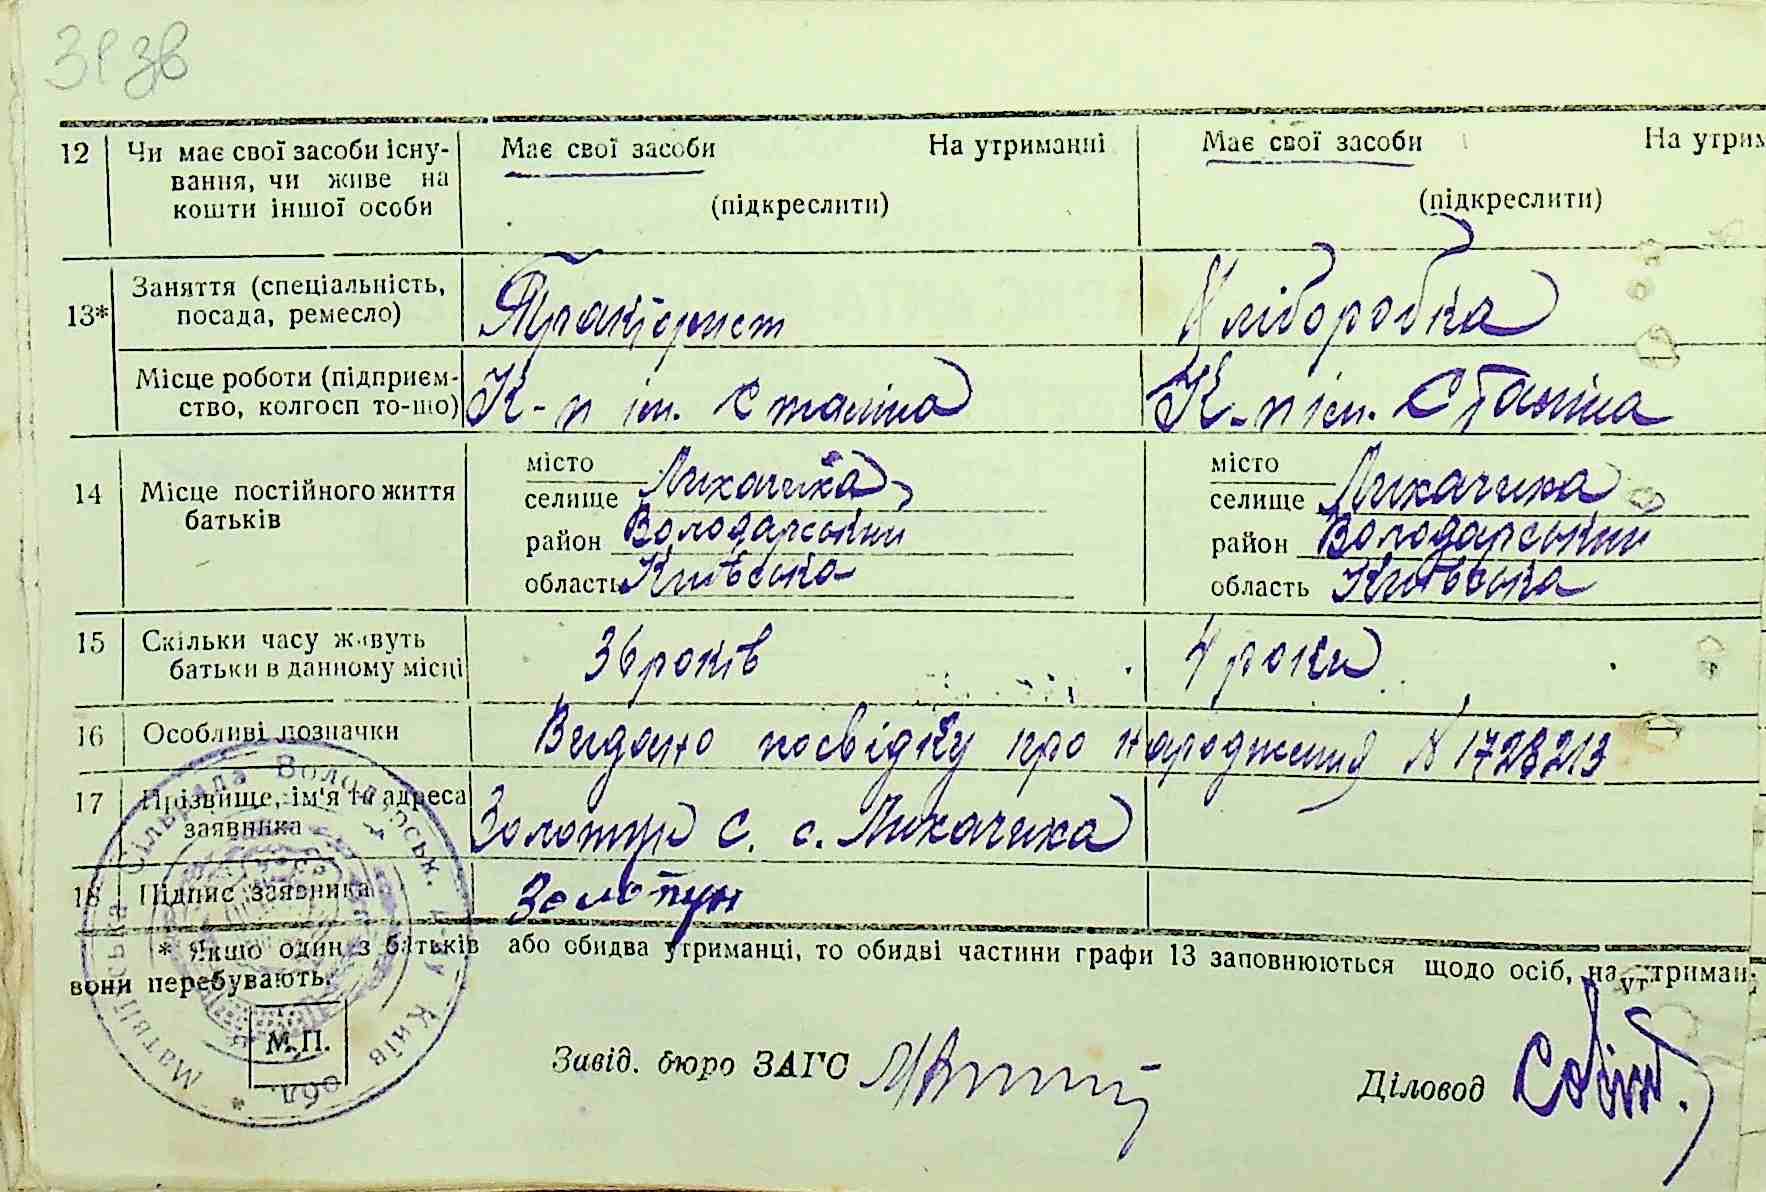 31 зв
12 Чи має свої засоби існу- Має свої засоби На утриманні Має свої засоби На утрим
вання, чи живе на
кошти іншої особи (підкреслити) (підкреслити)
13* Заняття (спеціальність, Тракторист Хліборобка
посада, ремесло)
Місце роботи (підприєм- К-п ім. Сталіна К-п ім. Сталіна
ство, колгосп то-що)
14 Місце постійного життя місто місто
батьків селище Лихачиха селище Лихачиха
район Володарський район Володарський
область Київська область Київська
15 Скільки часу живуть 36 років 4 роки
батьки в данному місці
16 Особливі позначки Видано посвідку про народження N 1728213
17 Прізвище, ім'я та адреса Золотун С. с. Лихачиха
заявника
18 Підпис заявника Золотун
* Якщо один з батьків або обидва утриманці, то обидві частини графи 13 заповнюються щодо осіб, на утриман-
вони перебувають.
М.П.
Завід. бюро ЗАГС Діловод
Матвіївська Сільрада Володарськ. р-ну Київ обл.